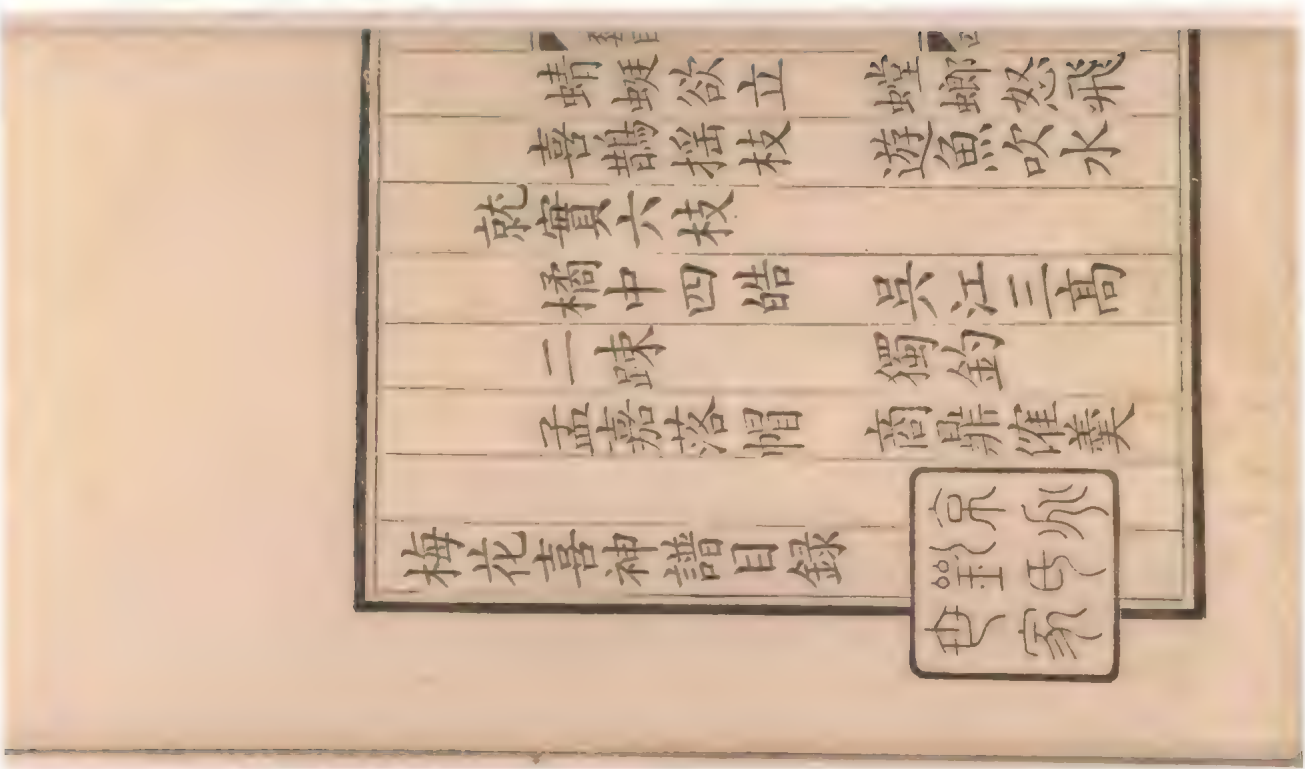 蜻蜓欲立　螳螂怒飛
喜鵲揺枝　遊魚吹水
就實六枝
橘中四皓　吳江三高
二踈　獨釣
孟嘉落帽　商鼎催羹
梅花喜神譜目録